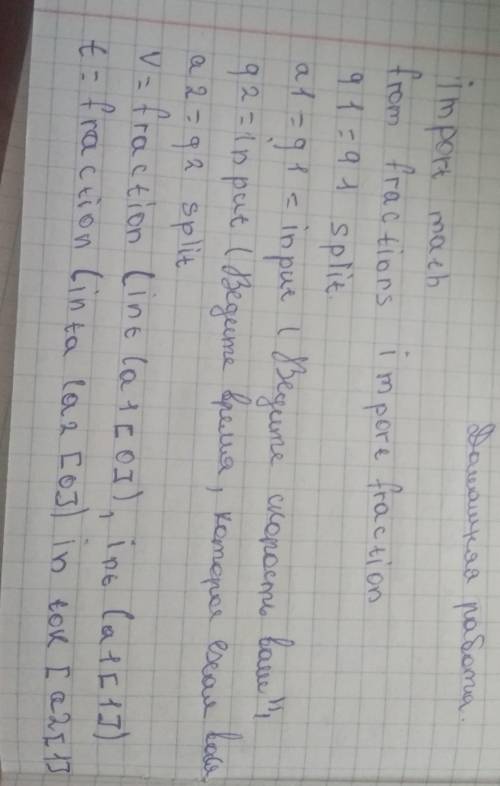 Домашняя работа.
import math
from fractions import fraction
g1 = g1 split.
a1 = g1 = input ( Ведите скорость вашей",
g2 = input ( Ведите время, которое ехал вася
a2 = g2 split
V = fraction (int (a1[0]), int (a1[1])
t = fraction (inta (a2[0]) in tok [a2[1]